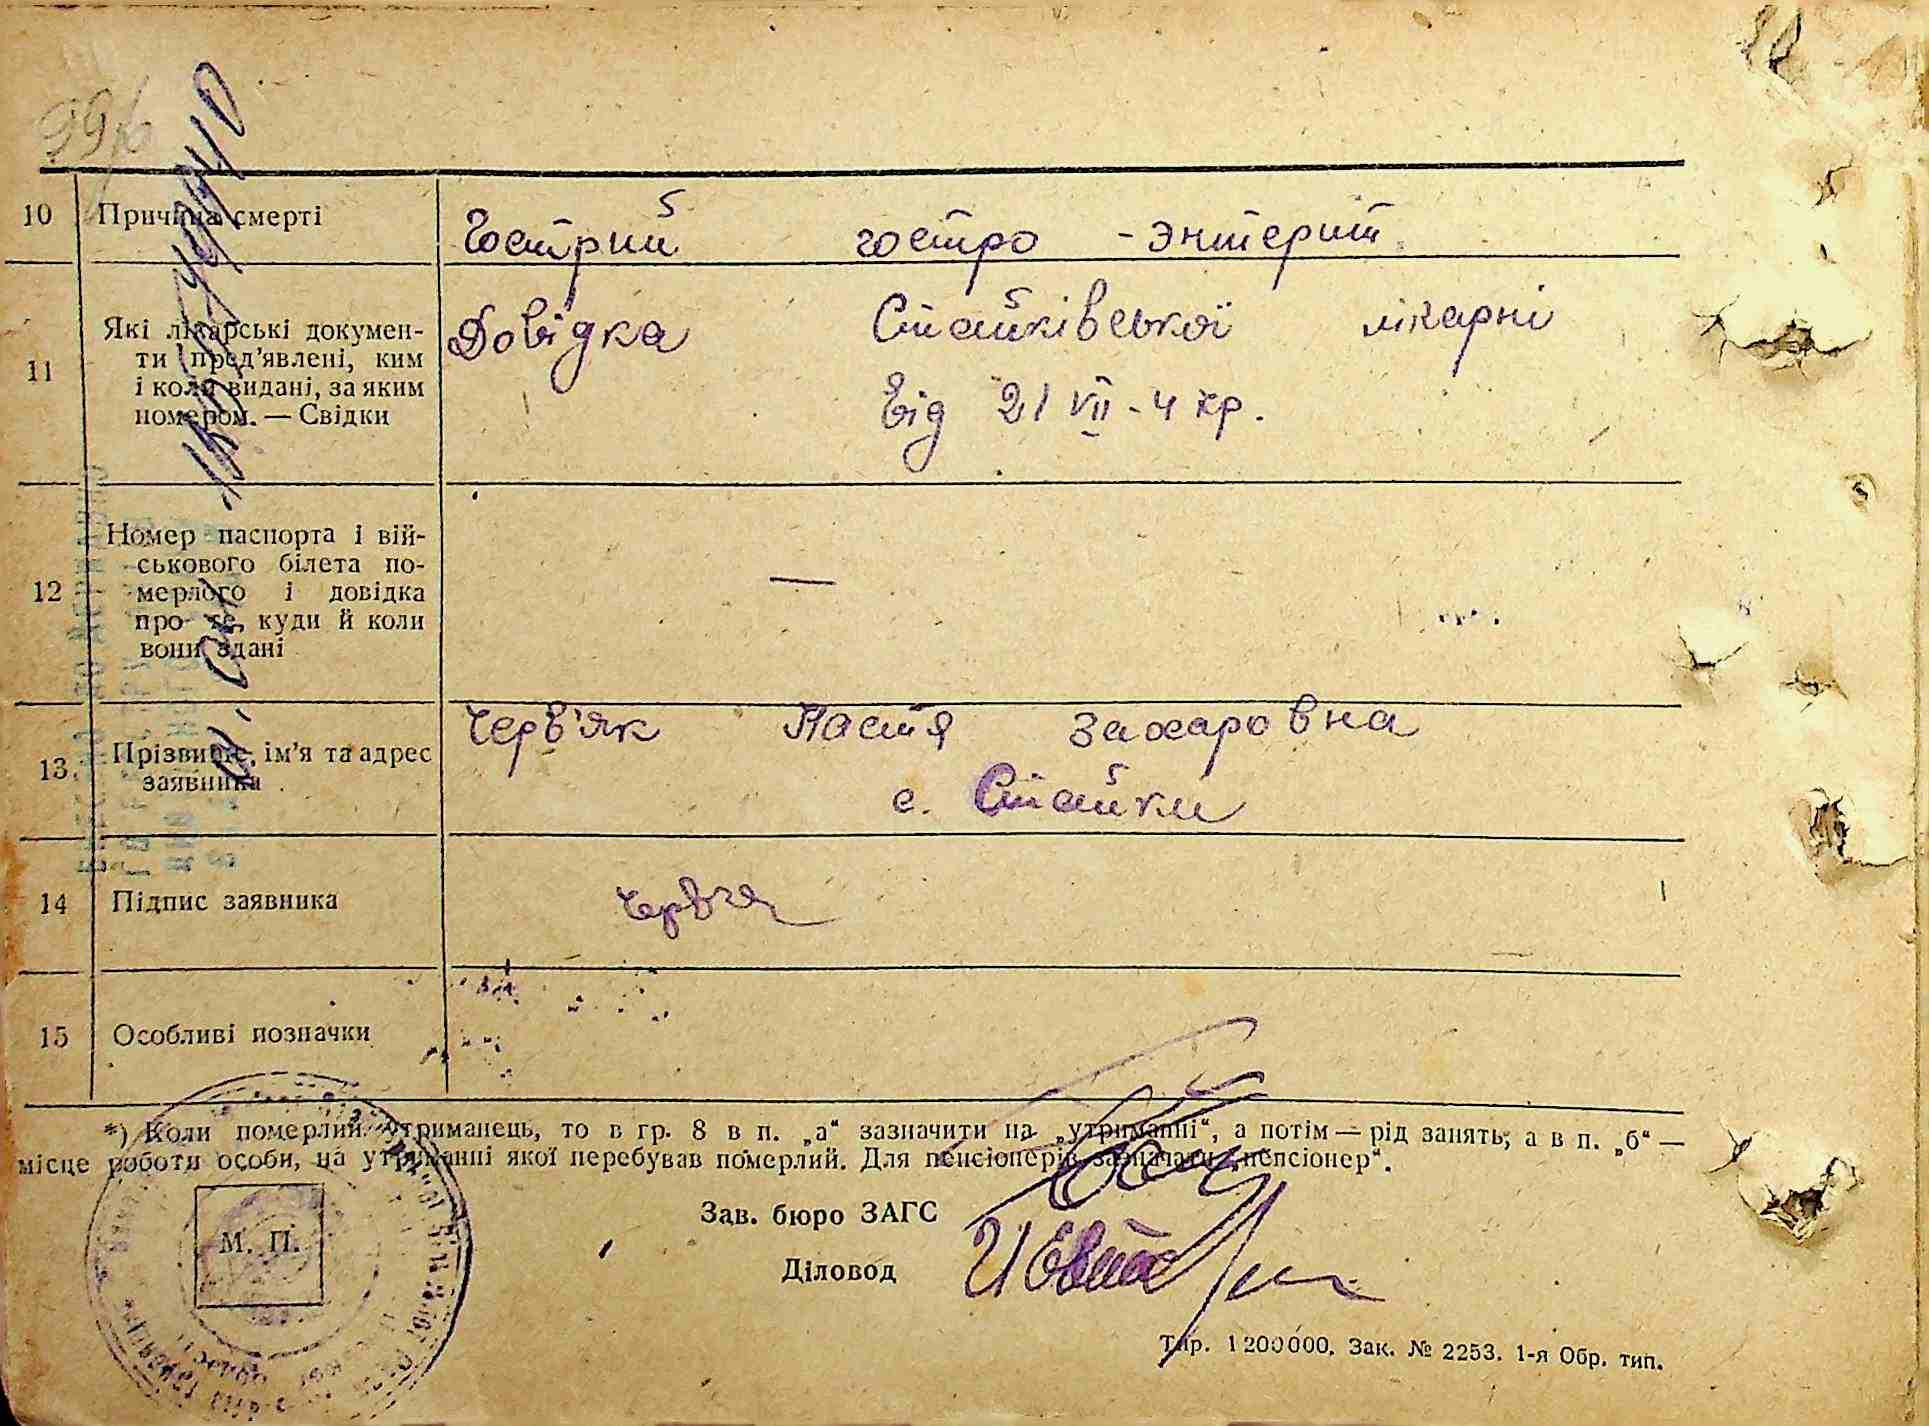 10 Причина смерті Гострий гостро-энтерит
11 Які лікарські докумен- Довідка Стайківської лікарні
ти пред'явлені, ким
і коли видані, за яким від 21 VII-4 кр.
номером. — Свідки
12 Номер паспорта і вій-
ськового білета по-
мерлого і довідка —
про те, куди й коли
вони здані
13 Прізвище, ім'я та адрес Черв'як Настя Захаровна
заявника с. Стайки
14 Підпис заявника
15 Особливі позначки
*) Коли померлий утриманець, то в гр. 8 в п. „а“ зазначити на „утриманні“, а потім — рід занять, а в п. „б“ —
місце роботи особи, на утриманні якої перебував померлий. Для пенсіонерів зазначати „пенсіонер“.
Зав. бюро ЗАГС
М. П.
Діловод
Тир. 1200000. Зак. № 2253. 1-я Обр. тип.